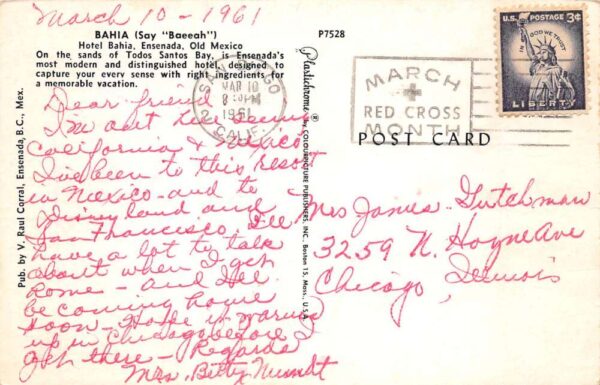 March 10 - 1961
BAHIA (Say "Baeeah")
Hotel Bahia, Ensenada, Old Mexico
On the sands of Todos Santos Bay, is Ensenada's
most modern and distinguished hotel, designed to
capture your every sense with right ingredients for
a memorable vacation.
P7528
Pub. by V. Raul Corral, Ensenada, B.C., Mex.
Plastichrome ® by COLOURPICTURE PUBLISHERS, INC., Boston 15, Mass., U.S.A.
Dear friend
I'm out here seeing
California & Mexico
I've been to this resort
in Mexico - and to
Disneyland and
San Francisco. I'll
have a lot to talk
about when I get
home - and I'll
be coming home
soon - Hope it warms
up in Chicago before I
get there - Regards
Mrs. Betty
SAN DIEGO
MAR 10
1961
CALIF.
MARCH
RED CROSS
MONTH
U.S. POSTAGE 3¢
IN GOD WE TRUST
LIBERTY
POST CARD
Mrs James Gutchman
3259 N. Hoyne Ave
Chicago, Illinois